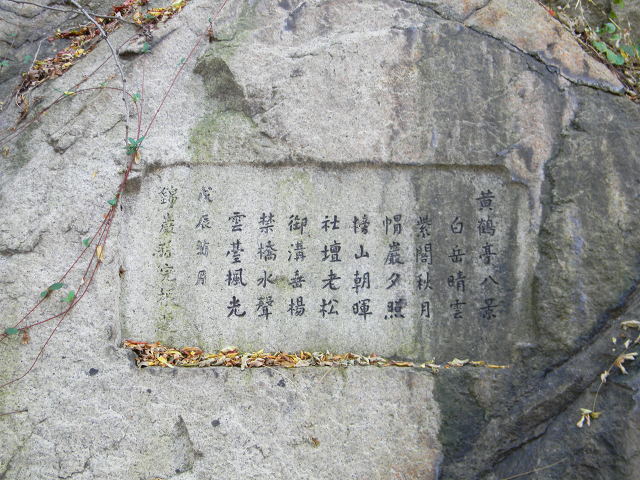 黄鶴亭八景
白岳晴雲
紫閣秋月
帽巖夕照
榜山朝暉
社壇老松
御溝垂楊
禁橋水聲
雲臺風光
戊辰 月
錦巖